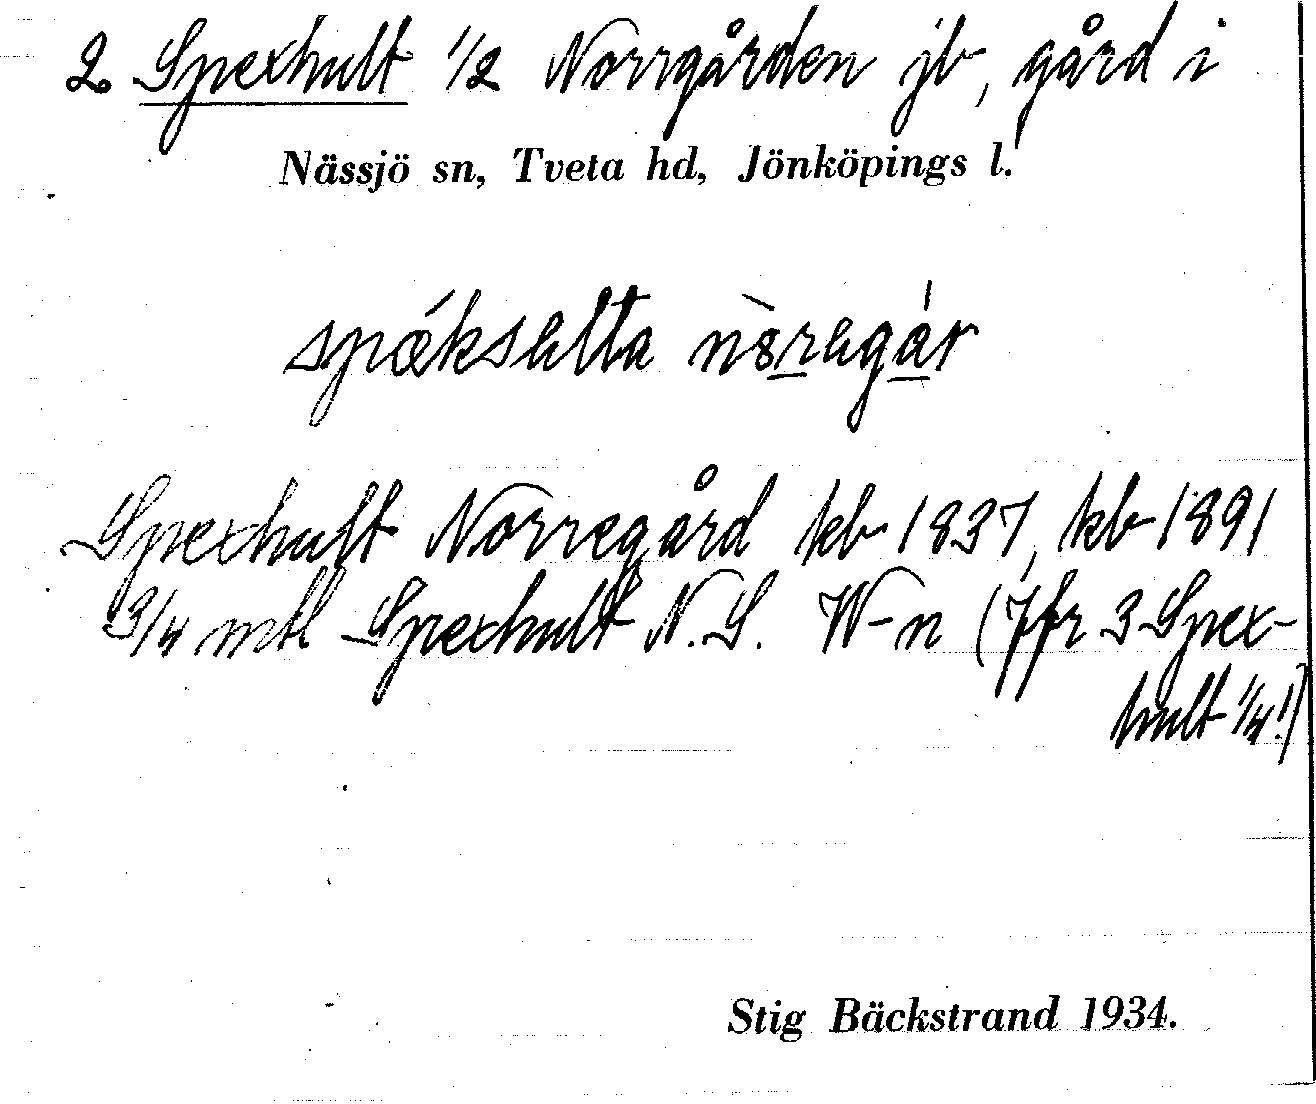 2 Spexhult 1/2 Norrgården jb, gård i
Nässjö sn, Tveta hd, Jönköpings l.
Spexhult Norregård kb 1837, kb 1891
3/4 mtl Spexhult N. S. W-n (Jfr 3 Spex-
hult 1/4!)
Stig Bäckstrand 1934.